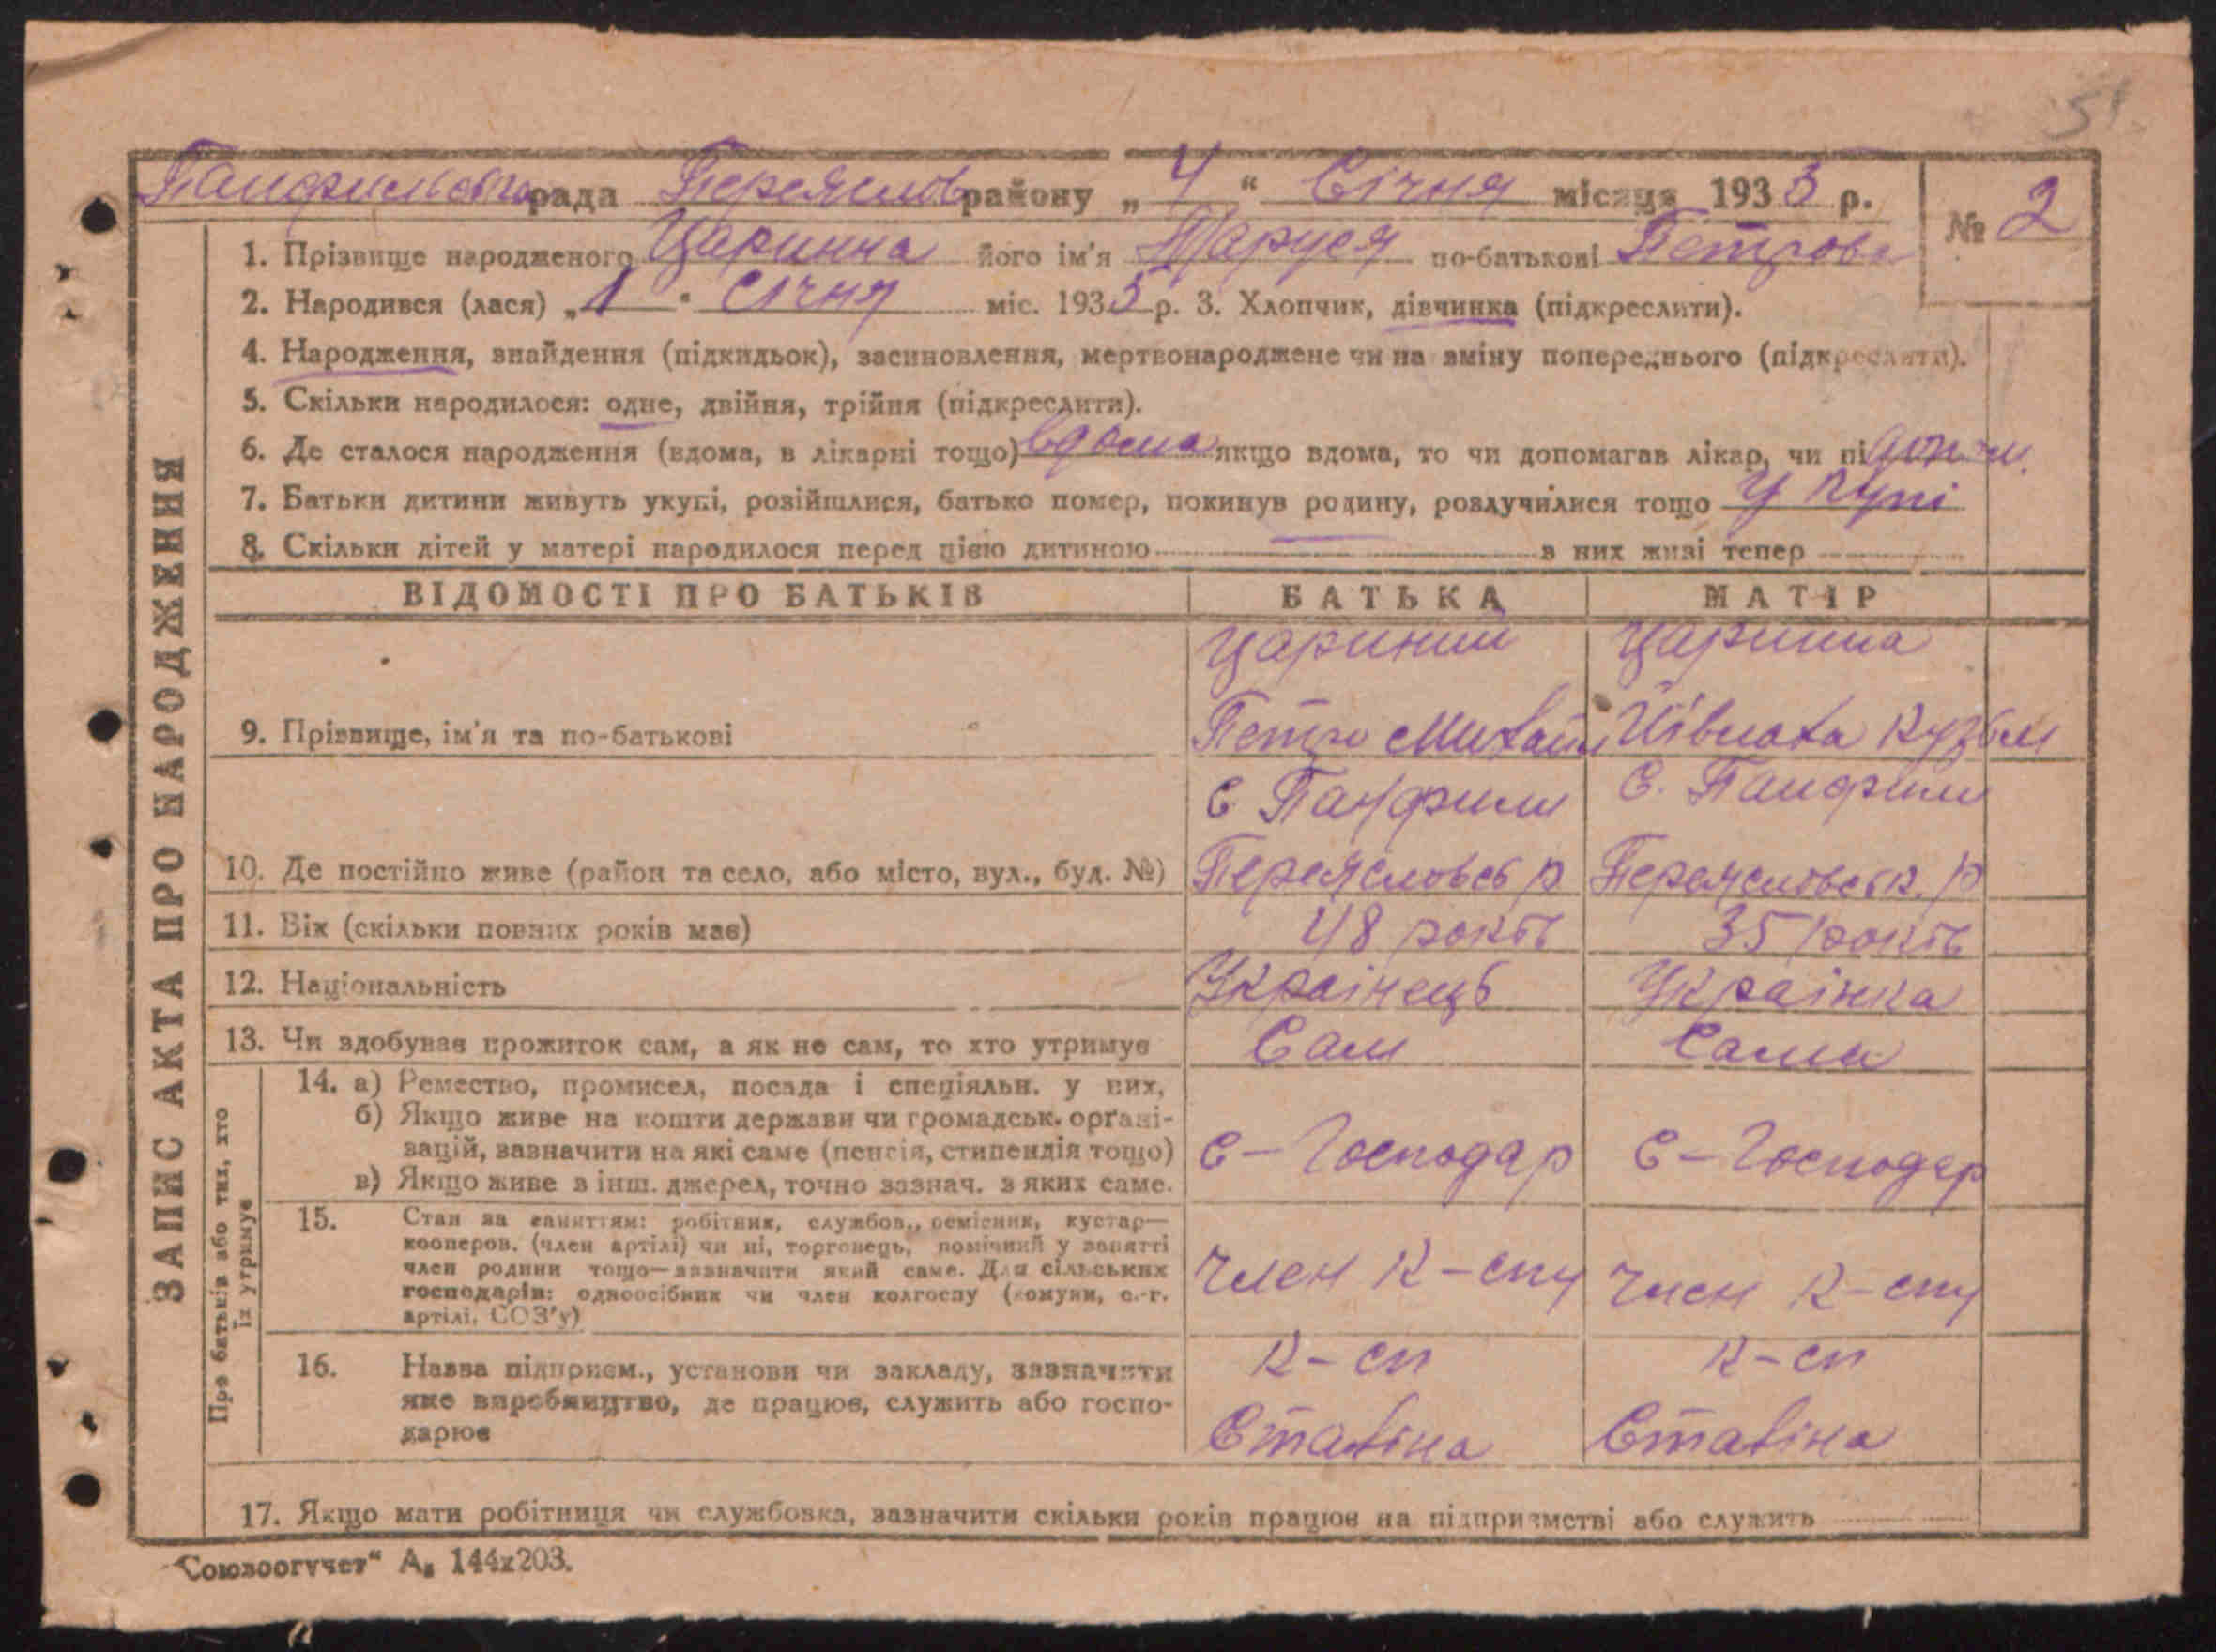 51.
Панфильська рада Переяслов району „4“ Січня місяця 1933 р. № 2
1. Прізвище народженого Царинна його ім'я Маруся по-батькові Петрова
2. Народився (лася) „1“ Січня міс. 1933 р. 3. Хлопчик, дівчинка (підкреслити).
4. Народження, знайдення (підкидьок), засиновлення, мертвонароджене чи на зміну попереднього (підкреслити).
5. Скільки народилося: одне, двійня, трійня (підкреслити).
6. Де сталося народження (вдома, в лікарні тощо) вдома якщо вдома, то чи допомагав лікар, чи ні
7. Батьки дитини живуть укупі, розійшлися, батько помер, покинув родину, розлучилися тощо У купі
8. Скільки дітей у матері народилося перед цією дитиною з них живі тепер
ВІДОМОСТІ ПРО БАТЬКІВ БАТЬКА МАТІР
Цариний Царинна
9. Прізвище, ім'я та по-батькові Петро Михайл Кузьм
С Панфили С. Панфили
10. Де постійно живе (район та село, або місто, вул., буд. №) Переясловсь р Переясловськ. р
11. Вік (скільки повних років має) 48 років 35 років
12. Національність Украінець Украінка
13. Чи здобував прожиток сам, а як не сам, то хто утримує Сам Сама
14. а) Ремество, промисел, посада і спеціяльн. у них,
б) Якщо живе на кошти держави чи громадськ. орґані-
зацій, зазначити на які саме (пенсія, стипендія тощо) С – Господар С – Господар
в) Якщо живе з інш. джерел, точно зазнач. з яких саме.
15. Стан за заняттям: робітник, службов., ремісник, кустар—
кооперов. (член артілі) чи ні, торговець, помічний у занятті
член родини тощо—зазначити який саме. Для сільських
господарів: одноосібник чи член колгоспу (комуни, с.-г.
артілі, СОЗ'у) Член К-спу Член К-спу
16. Назва підприєм., установи чи закладу, зазначити К-сп К-сп
яке виробництво, де працює, служить або госпо-
дарює Сталіна Сталіна
17. Якщо мати робітниця чи службовка, зазначити скільки років працює на підприємстві або служить
ЗАПИС АКТА ПРО НАРОДЖЕННЯ
Про батьків або тих, хто
їх утримує
"Союзоргучет" А₅ 144х203.